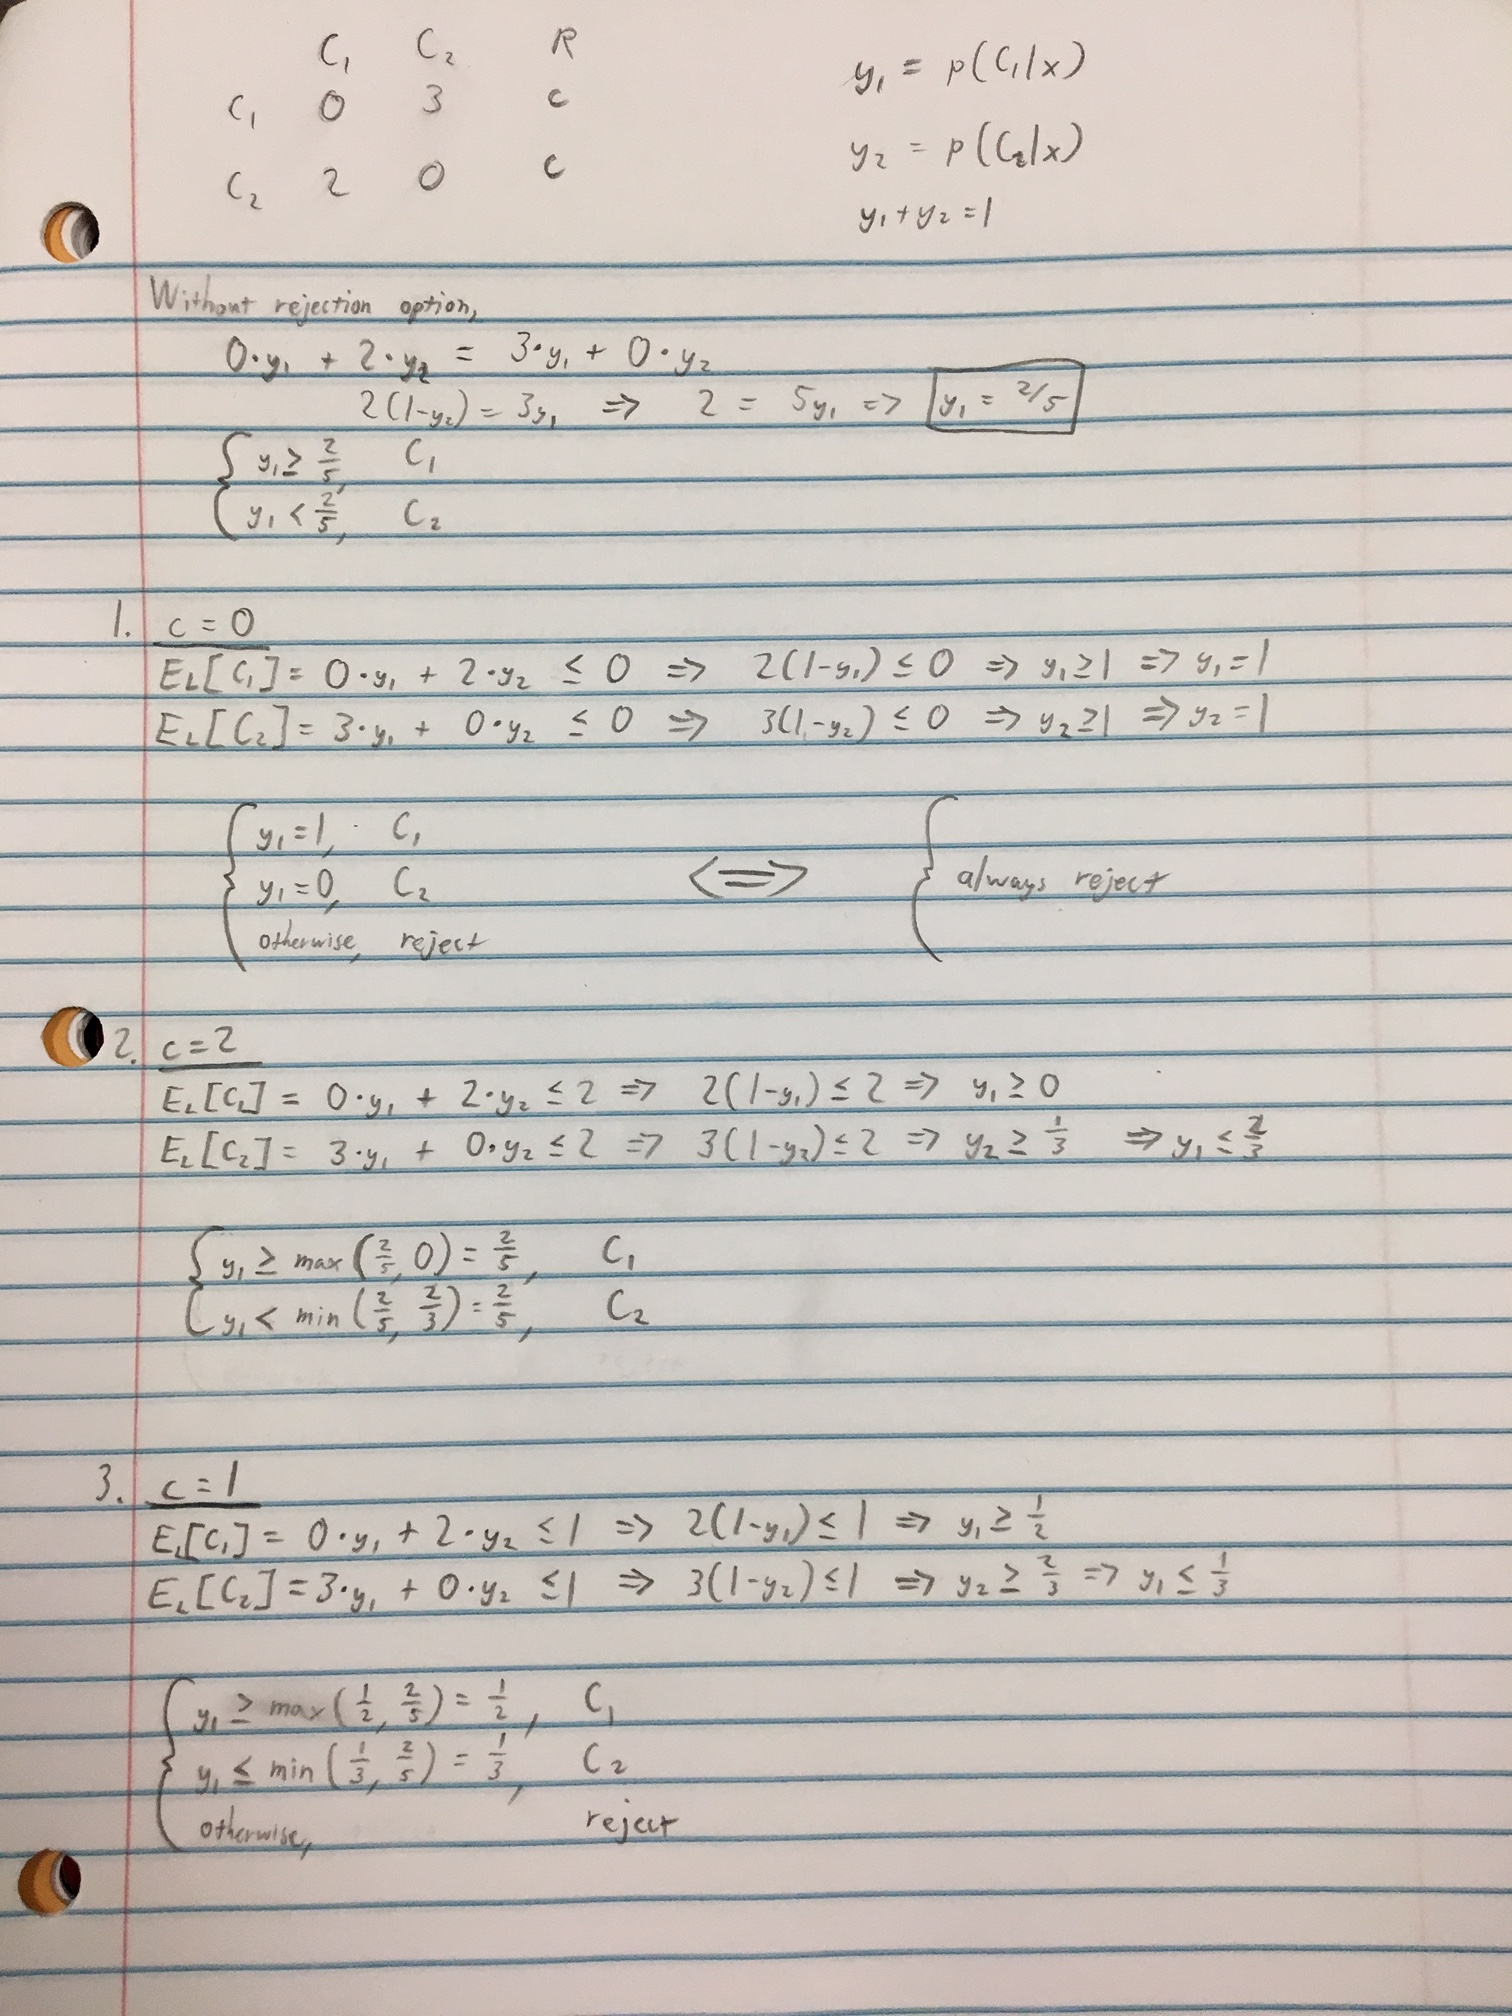 C₁ C₂ R
C₁ 0 3 c
C₂ 2 0 c
y₁ = p(C₁|x)
y₂ = p(C₂|x)
y₁ + y₂ = 1
Without rejection option,
0·y₁ + 2·y₂ = 3·y₁ + 0·y₂
2(1-y₂) = 3y₁ => 2 = 5y₁ => y₁ = 2/5
{ y₁ ≥ 2/5, C₁
y₁ < 2/5, C₂
1. c = 0
E_L[C₁] = 0·y₁ + 2·y₂ ≤ 0 => 2(1-y₁) ≤ 0 => y₁ ≥ 1 => y₁ = 1
E_L[C₂] = 3·y₁ + 0·y₂ ≤ 0 => 3(1-y₂) ≤ 0 => y₂ ≥ 1 => y₂ = 1
{ y₁ = 1, C₁
y₁ = 0, C₂ <=> { always reject
otherwise, reject
2. c = 2
E_L[C₁] = 0·y₁ + 2·y₂ ≤ 2 => 2(1-y₁) ≤ 2 => y₁ ≥ 0
E_L[C₂] = 3·y₁ + 0·y₂ ≤ 2 => 3(1-y₂) ≤ 2 => y₂ ≥ 1/3 => y₁ ≤ 2/3
{ y₁ ≥ max(2/5, 0) = 2/5, C₁
y₁ < min(2/5, 2/3) = 2/5, C₂
3. c = 1
E_L[C₁] = 0·y₁ + 2·y₂ ≤ 1 => 2(1-y₁) ≤ 1 => y₁ ≥ 1/2
E_L[C₂] = 3·y₁ + 0·y₂ ≤ 1 => 3(1-y₂) ≤ 1 => y₂ ≥ 2/3 => y₁ ≤ 1/3
{ y₁ ≥ max(1/2, 2/5) = 1/2, C₁
y₁ ≤ min(1/3, 2/5) = 1/3, C₂
otherwise, reject